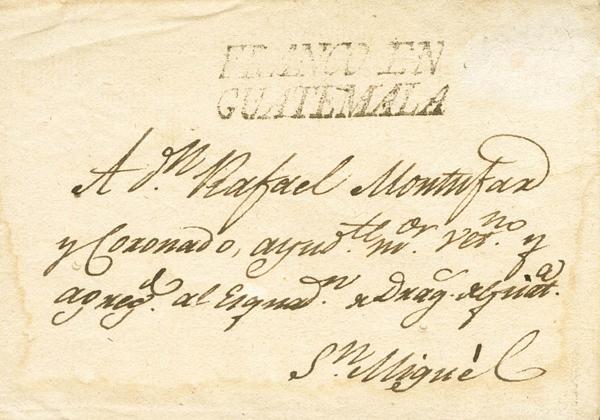 FRANCO EN
GUATEMALA
A Dn. Rafael Montufar
y Coronado, ayud.te mr. Vet.no y
agreg.d al Esquad.n de Drag.s de Guat.a
Sn. Miguèl